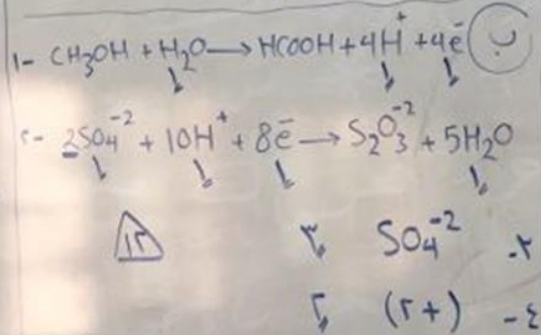 ب
١- CH₃OH + H₂O → HCOOH + 4H⁺ + 4e⁻
٢- 2SO₄⁻² + 10H⁺ + 8e⁻ → S₂O₃⁻² + 5H₂O
١٢
٣- SO₄⁻² ٣
٤- (٢+) ٢